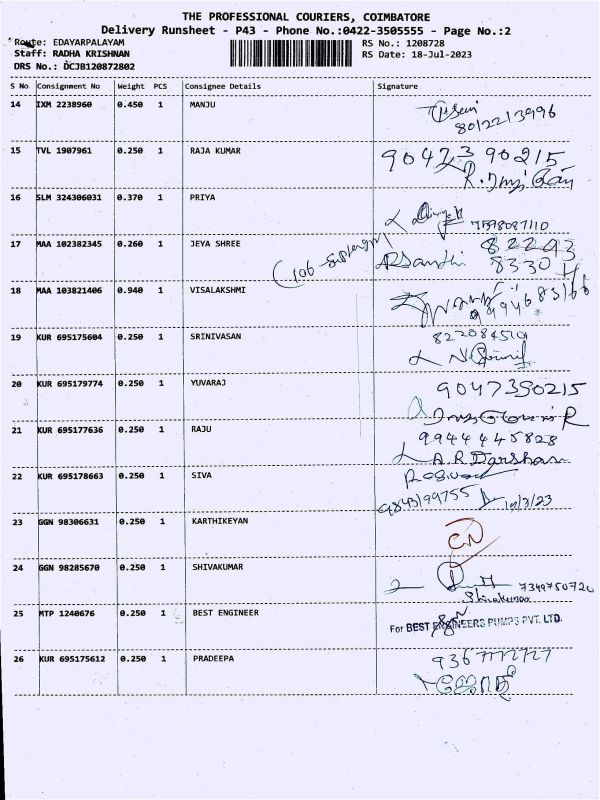 THE PROFESSIONAL COURIERS, COIMBATORE
Delivery Runsheet - P43 - Phone No.:0422-3505555 - Page No.:2
Route: EDAYARPALAYAM RS No.: 1208728
Staff: RADHA KRISHNAN RS Date: 18-Jul-2023
DRS No.: DCJB120872802
S No Consignment No Weight PCS Consignee Details Signature
14 IXM 2238960 0.450 1 MANJU
8012213996
15 TVL 1907961 0.250 1 RAJA KUMAR 9047390215
16 SLM 324306031 0.370 1 PRIYA
7598087110
17 MAA 102382345 0.260 1 JEYA SHREE 82293
(106 ARSanthi 8330
18 MAA 103821406 0.940 1 VISALAKSHMI
19 KUR 695175604 0.250 1 SRINIVASAN
20 KUR 695179774 0.250 1 YUVARAJ 9047390215
21 KUR 695177636 0.250 1 RAJU 9944445828
A.R Darshan
22 KUR 695178663 0.250 1 SIVA
9843199755
23 GGN 98306631 0.250 1 KARTHIKEYAN
CN
24 GGN 98285670 0.250 1 SHIVAKUMAR
7349750720
Shivakumar
25 MTP 1240676 0.250 1 BEST ENGINEER For BEST ENGINEERS PUMPS PVT. LTD.
26 KUR 695175612 0.250 1 PRADEEPA